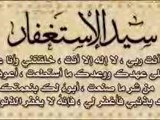 سيد الإستغفار
أنت ربي ، لا إله إلا أنت ، خلقتني وأنا
عهدك ووعدك ما استطعت ، أعوذ
من شر ما صنعت ، أبوء لك بنعمتك
بذنبي فاغفر لي ، فإنه لا يغفر